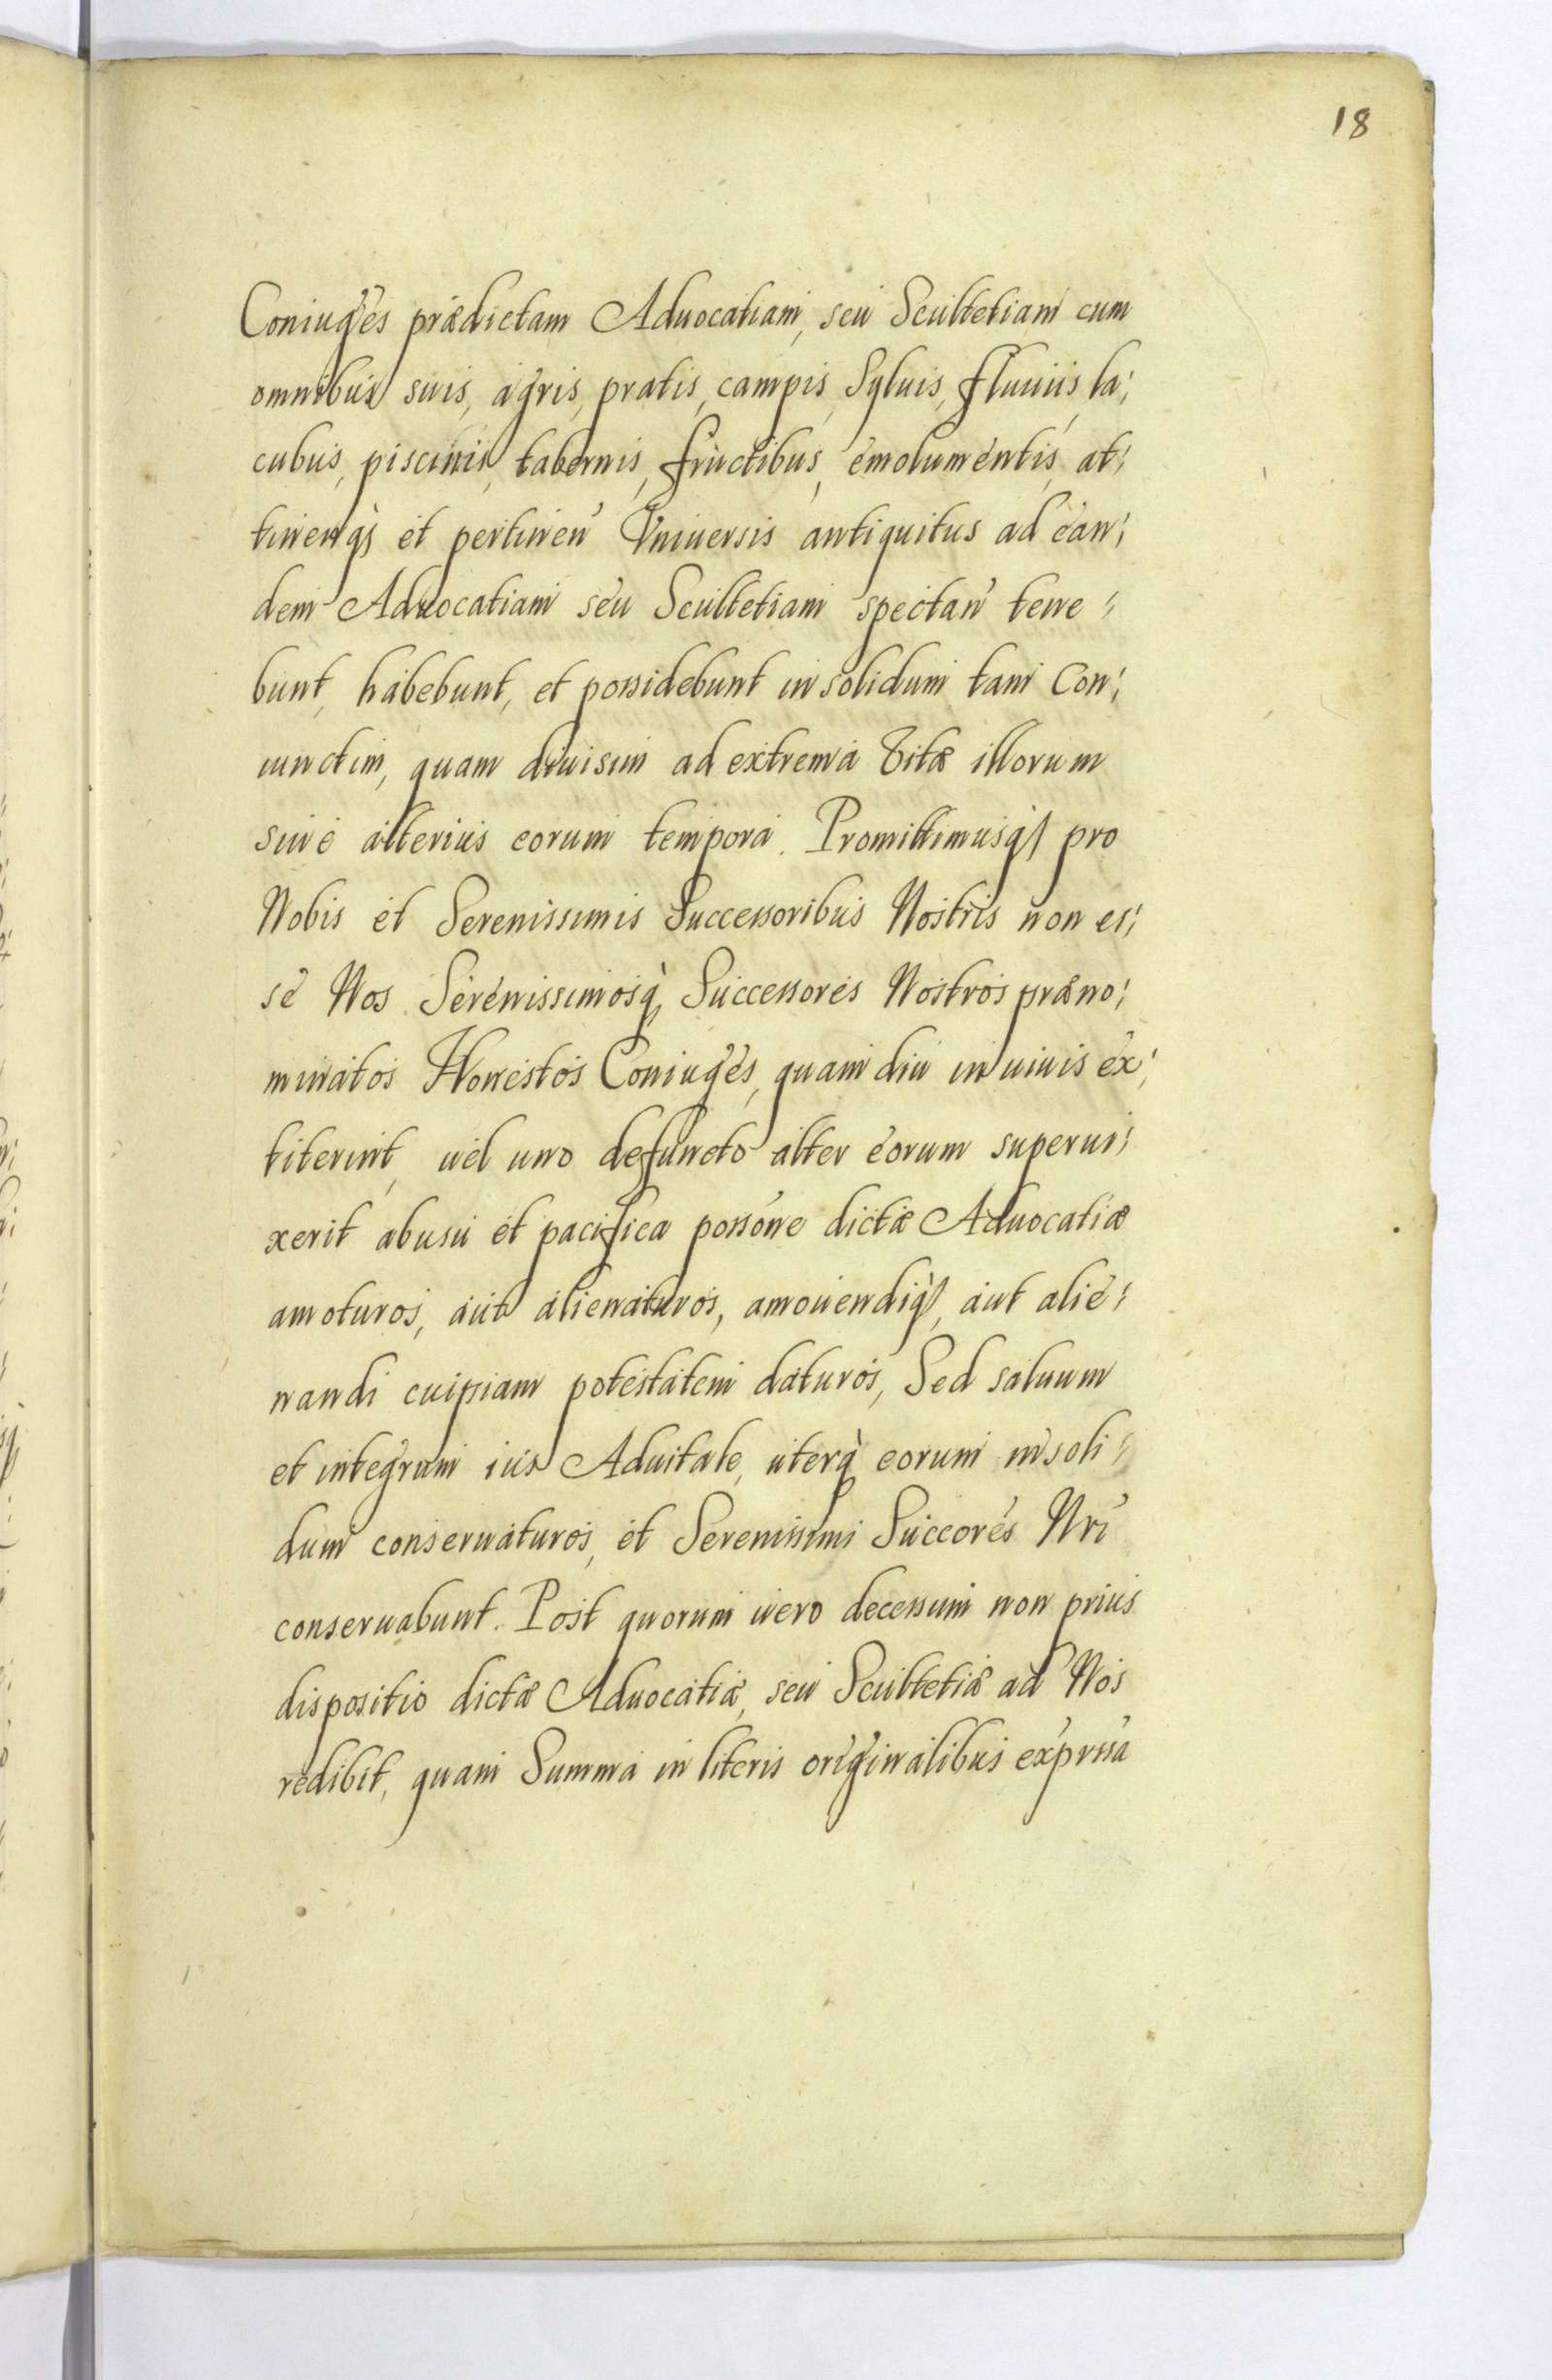 18
Coniuges prædictam Aduocatiam, seu Scultetiam cum
omnibus suis, agris, pratis, campis, Syluis, fluuiis, la:
cubus, piscinis, tabernis, fructibus, emolumentis, at:
tinenq; et pertinen̄ Vniuersis antiquitus ad ean:
dem Aduocatiam seu Scultetiam spectan̄ tene:
bunt, habebunt, et possidebunt in solidum tam Con:
iunctim, quam diuisim ad extrema Vitæ illorum
siue alterius eorum tempora. Promittimusq; pro
Nobis et Serenissimis Successoribus Nostris non es:
se Nos Serenissimosq; Successores Nostros præno:
minatos Honestos Coniuges, quam diu in uiuis ex:
titerint, uel uno defuncto alter eorum superui:
xerit ab usu et pacifica possōne dictæ Aduocatiæ
amoturos, aut alienaturos, amouendiq;, aut alie:
nandi cuipiam potestatem daturos, Sed saluum
et integrum ius Aduitale, uterq; eorum in soli:
dum conseruaturos, et Serenissimi Succōres Nrī
conseruabunt. Post quorum uero decessum non prius
dispositio dictæ Aduocatiæ, seu Scultetiæ ad Nos
redibit, quam Summa in literis originalibus exprssa